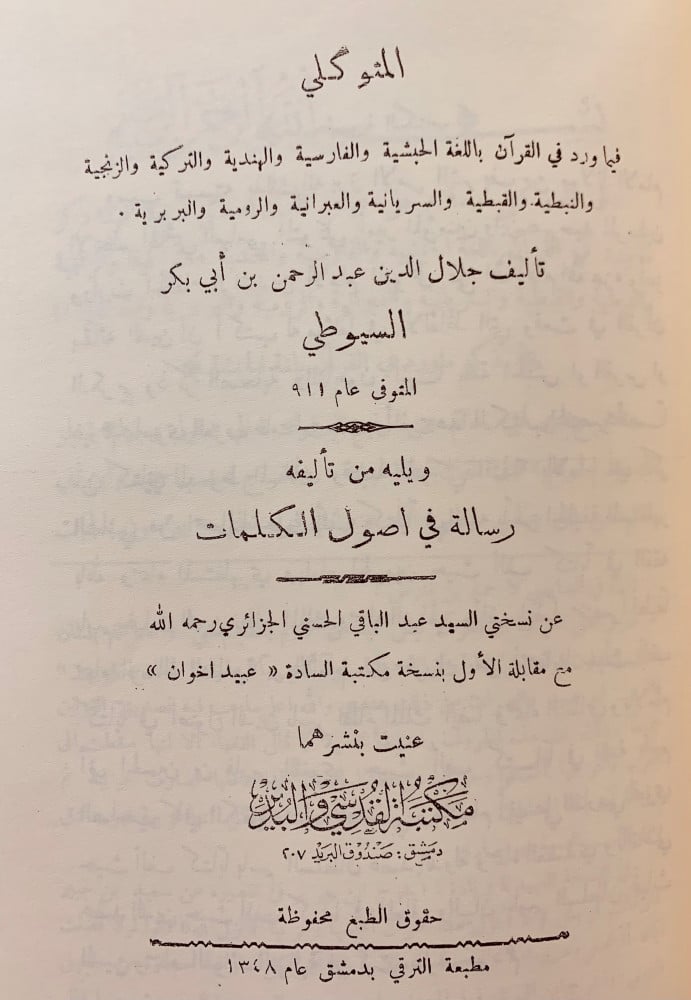 المتوكلي
فيما ورد في القرآن باللغة الحبشية والفارسية والهندية والتركية والزنجية
والنبطية والقبطية والسريانية والعبرانية والرومية والبربرية ٠
تأليف جلال الدين عبد الرحمن بن أبي بكر
السيوطي
المتوفى عام ٩١١
ويليه من تأليفه
رسالة في اصول الكلمات
عن نسختي السيد عبد الباقي الحسني الجزائري رحمه الله
مع مقابلة الأول بنسخة مكتبة السادة « عبيد اخوان »
عنيت بنشرهما
مكتبة القدسي والبدير
دمشق : صندوق البريد ٢٠٧
حقوق الطبع محفوظة
مطبعة الترقي بدمشق عام ١٣٤٨